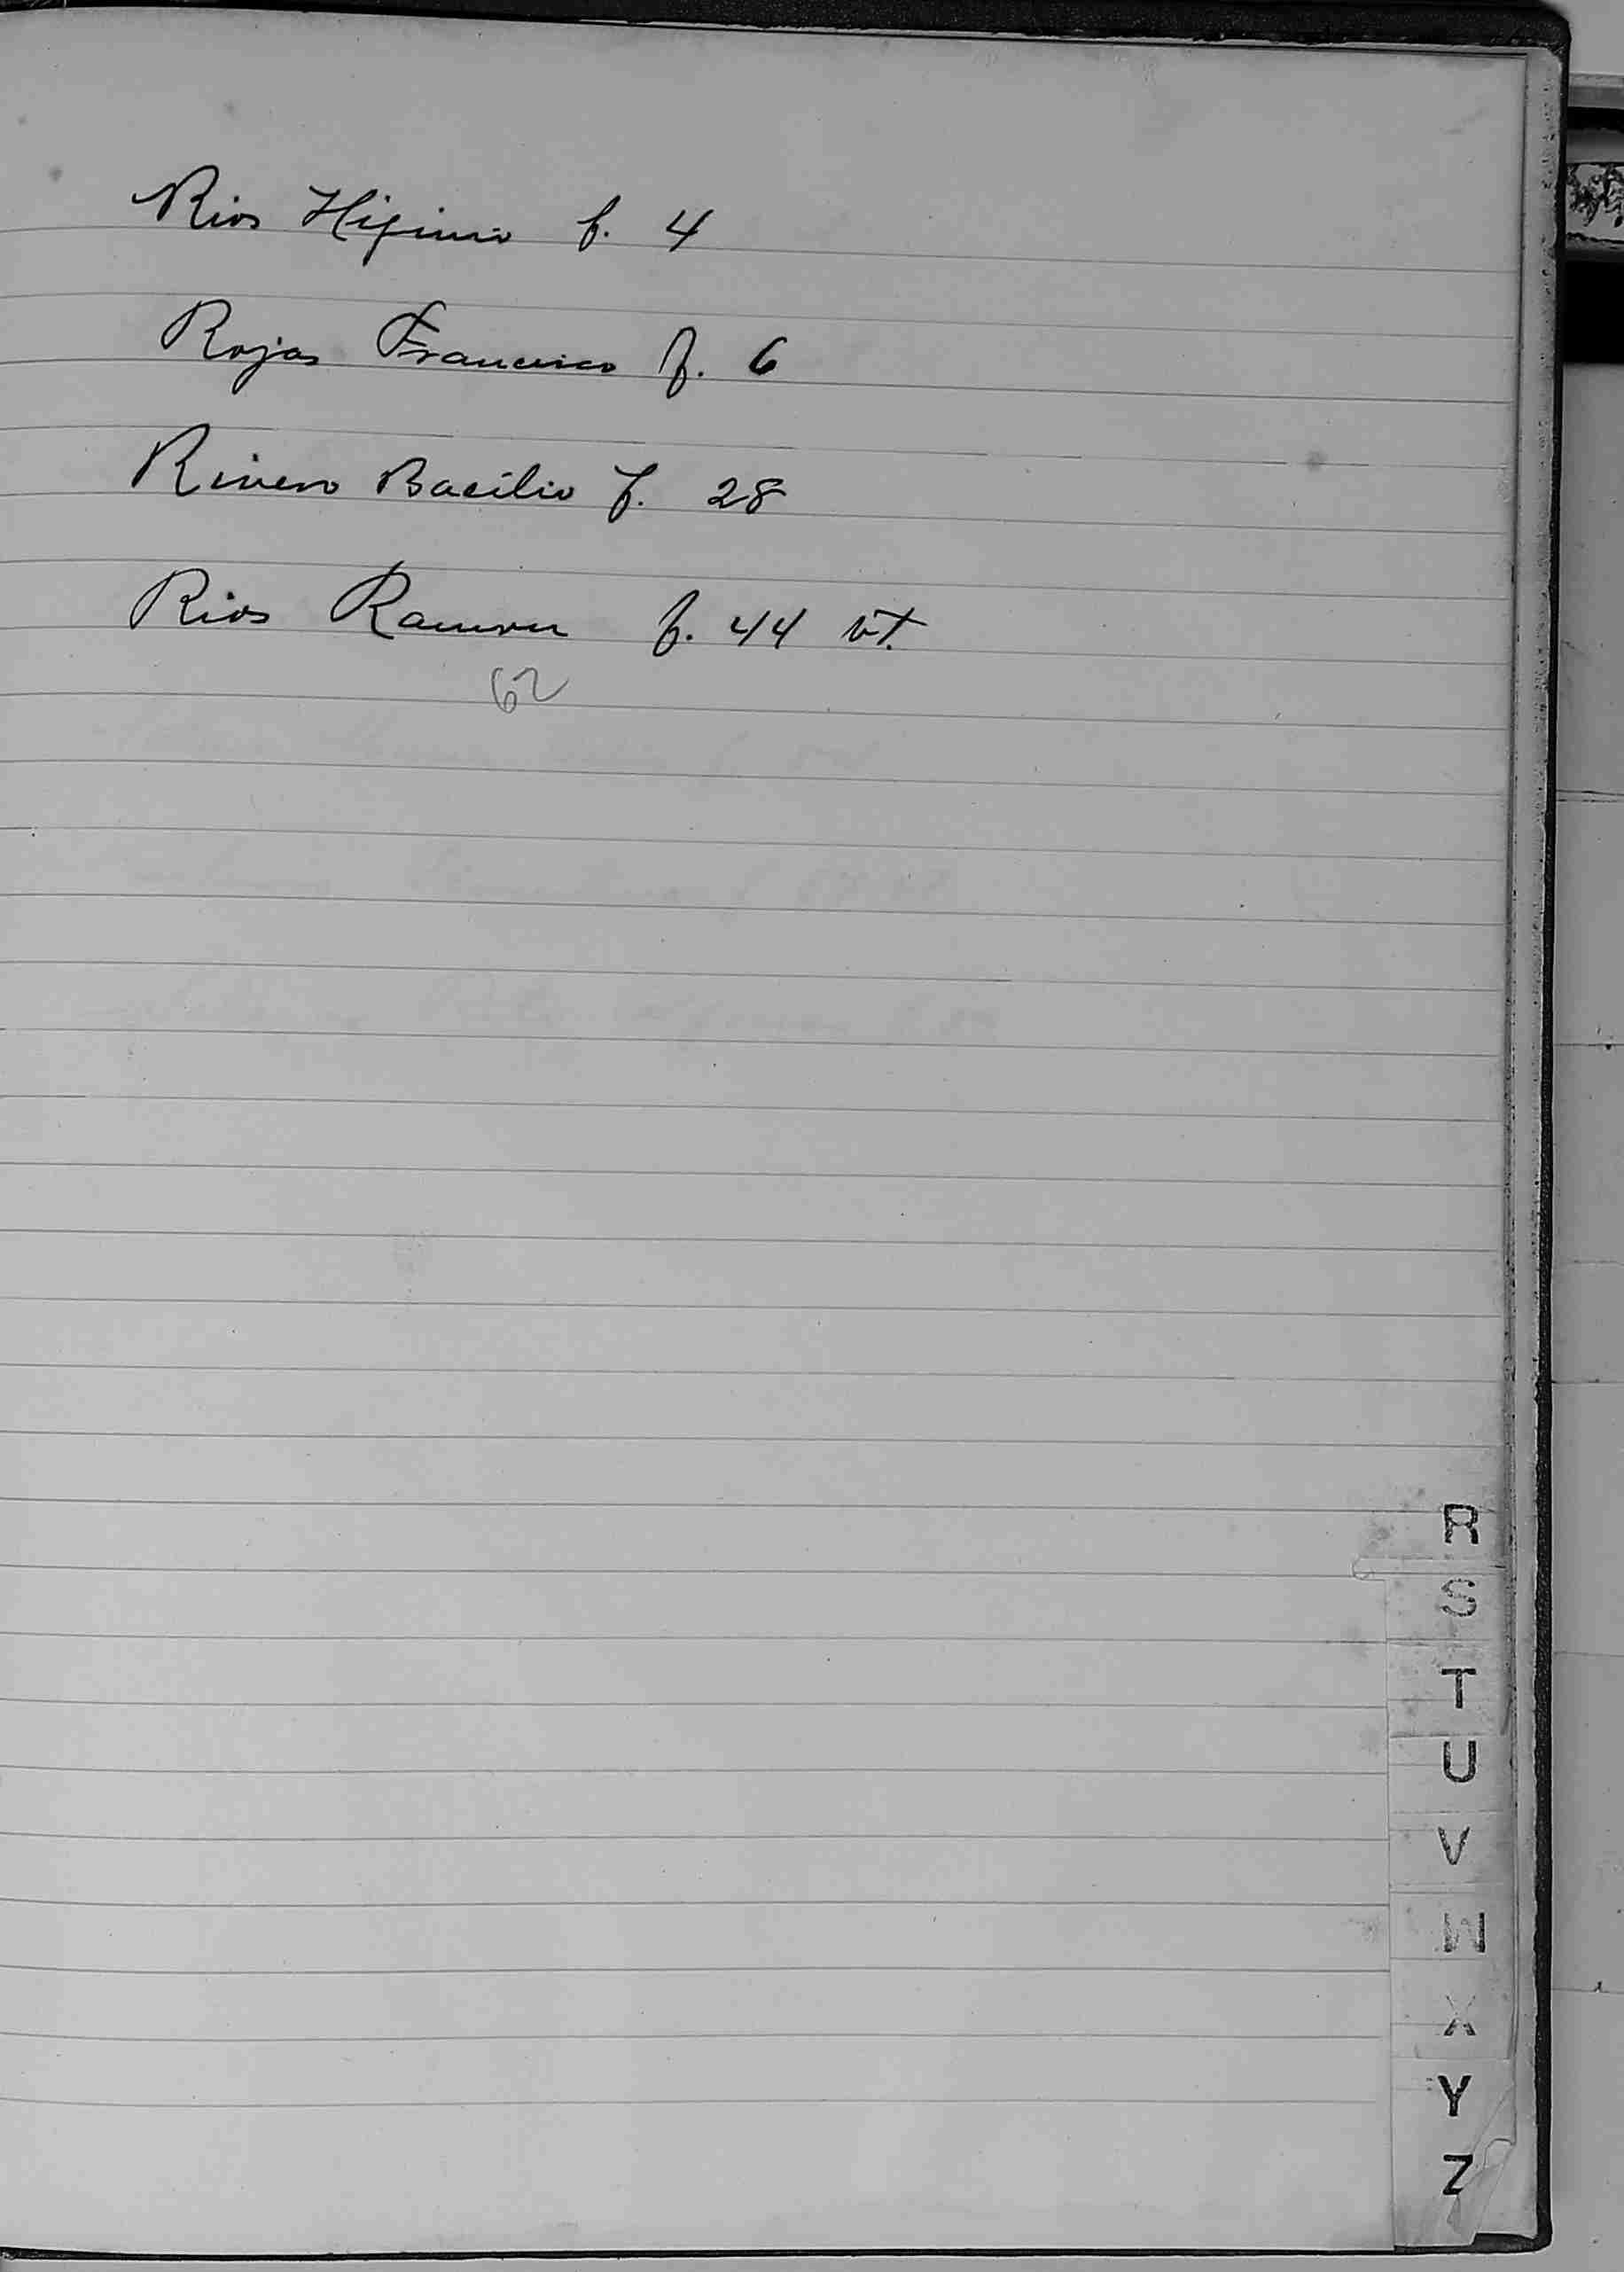 Rios Higinio f. 4
Rojas Francisco f. 6
Rivero Bacilio f. 28
Rios Ramon f. 44 vt.
62
R
S
T
U
V
W
X
Y
Z